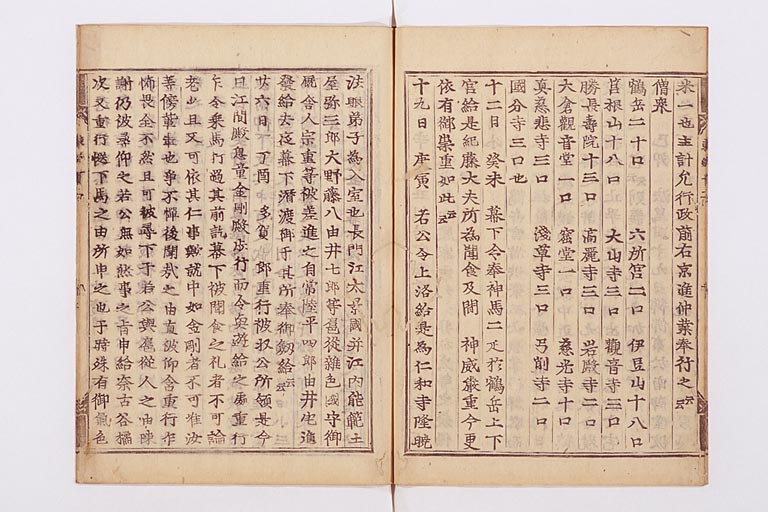 米一也主計允行政前右京進仲業奉行之云々
僧衆
鶴岳二十口 六所宮二口 伊豆山十八口
筥根山十八口 大山寺三口 觀音寺三口
勝長壽院十三口 高麗寺三口 岩殿寺二口
大倉觀音堂一口 窟堂一口 慈光寺十口
眞慈悲寺三口 淺草寺三口 弓削寺二口
國分寺三口也
十二日 癸未 幕下令奉神馬二疋於鶴岳上下
宮給是紀藤大夫所為聞食及間 神威嚴重今更
依有御崇重如此云々
十九日 庚寅 若公令上洛給是為仁和寺隆曉
法眼弟子為入室也長門江太景國并江内能範土
屋弥三郎大野藤八由井七郎等扈從雜色國守御
厩舎人宗重等被差進之自常陸平四郎由井宅進
發給去夜幕下潜渡御于其所奉御釼給云々
廿六日 丁酉 多賀二郎重行被収公所領是今
日江間殿息童金剛殿歩行而令輿遊給之處重行
乍令乘馬打過其前訖幕下被聞食之礼者不可論
老少且又可依其仁事歟就中如金剛者不可准汝
等傍輩也爭不憚後聞哉之由直被仰含重行乍
怖畏全不然且可被尋下于若公與扈從人之由陳
謝仍被尋仰之若公無如然事之旨申給奈古谷橘
次又重行慥下馬之由所申之也于時殊有御氣色